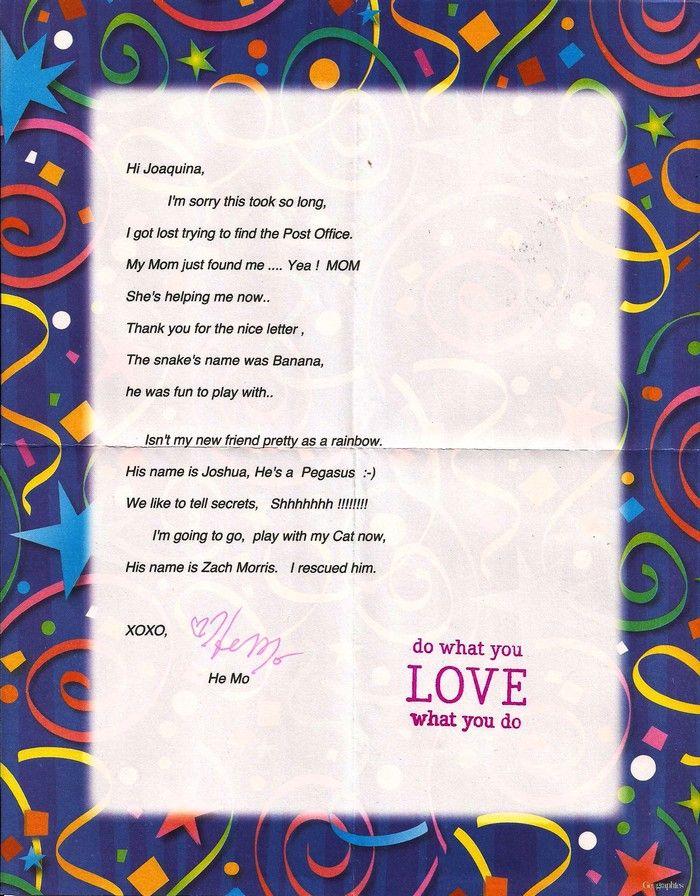 Hi Joaquina,
I'm sorry this took so long,
I got lost trying to find the Post Office.
My Mom just found me .... Yea ! MOM
She's helping me now..
Thank you for the nice letter ,
The snake's name was Banana,
he was fun to play with..
Isn't my new friend pretty as a rainbow.
His name is Joshua, He's a Pegasus :-)
We like to tell secrets, Shhhhhhh !!!!!!!!
I'm going to go, play with my Cat now,
His name is Zach Morris. I rescued him.
XOXO,
He Mo
He Mo
do what you
LOVE
what you do
Geographics